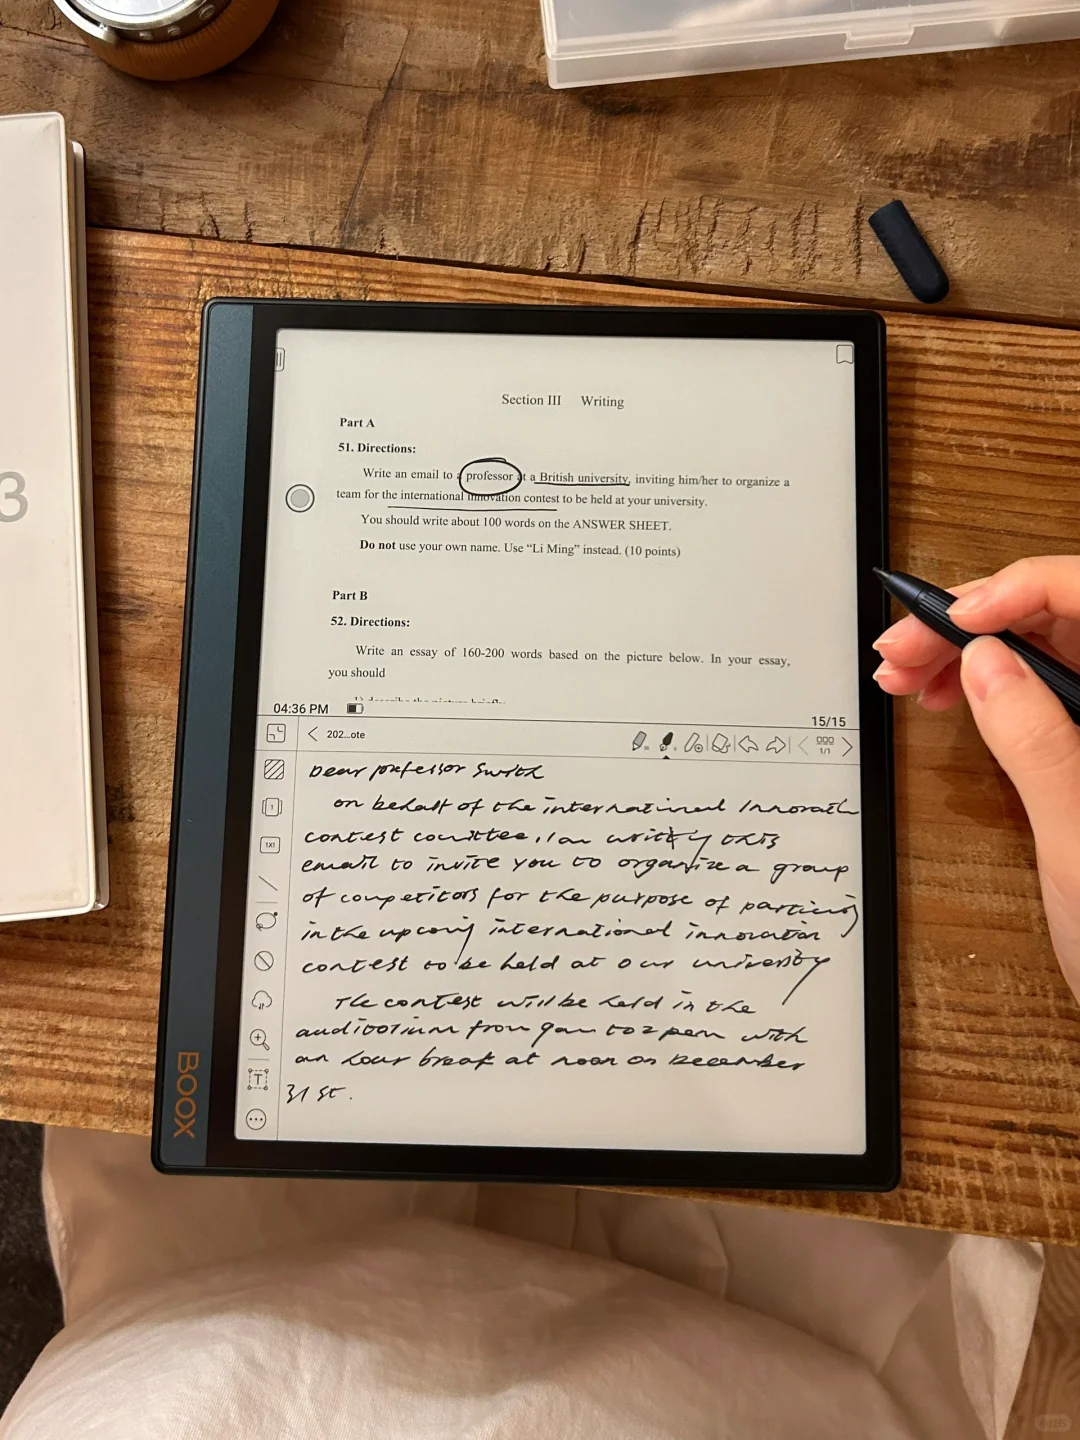 3
Section III Writing
Part A
51. Directions:
Write an email to a professor at a British university, inviting him/her to organize a
team for the international innovation contest to be held at your university.
You should write about 100 words on the ANSWER SHEET.
Do not use your own name. Use “Li Ming” instead. (10 points)
Part B
52. Directions:
Write an essay of 160-200 words based on the picture below. In your essay,
you should
04:36 PM
15/15
202...ote
1/1
Dear professor Smith
on behalf of the international Innovation
contest committee, I am writing this
email to invite you to organize a group
of competitors for the purpose of
in the upcoming international innovation
contest to be held at our university
The contest will be held in the
auditorium from 9am to 2pm with
an hour break at noon on December
31st.
T
BOOX